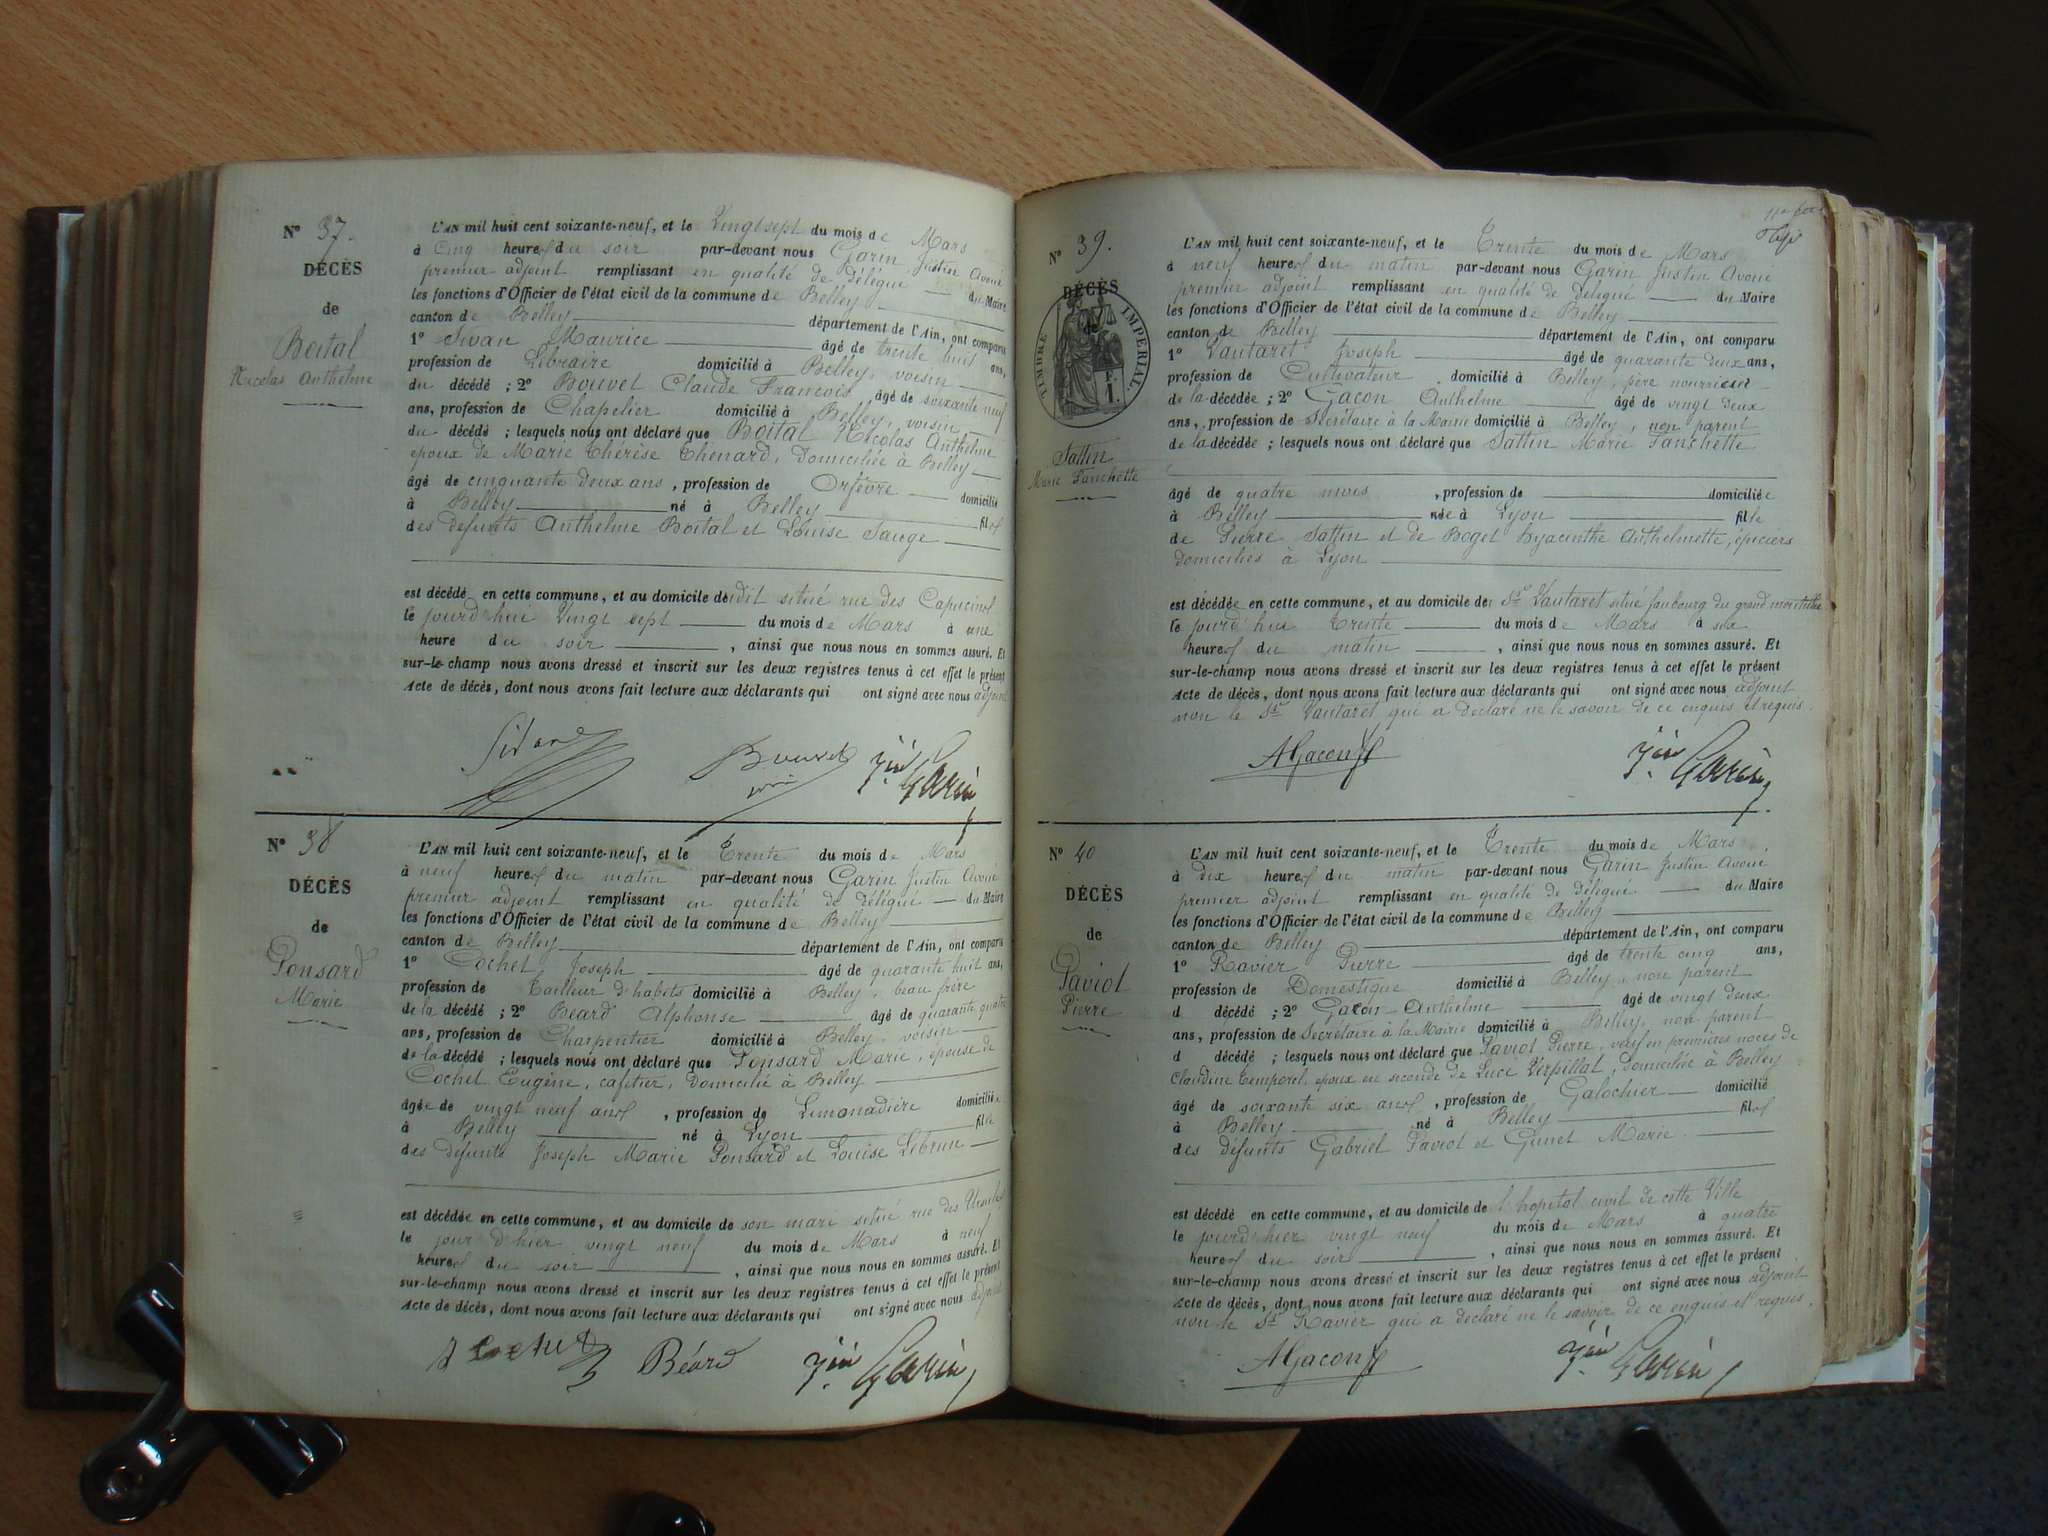 N° 37.
DÉCÈS
de
Boital
Nicolas Anthelme
L'AN mil huit cent soixante-neuf, et le Vingt sept du mois de Mars
à cinq heures du soir par-devant nous Garin Justin Avoué
premier adjoint remplissant en qualité de délégué du Maire
les fonctions d'Officier de l'état civil de la commune de Belley
canton de Belley département de l'Ain, ont comparu
1° Sivan Maurice âgé de trente huit ans,
profession de Libraire domicilié à Belley, voisin
du décédé ; 2° Bouvet Claude François âgé de soixante neuf
ans, profession de Chapelier domicilié à Belley, voisin
du décédé ; lesquels nous ont déclaré que Boital Nicolas Anthelme
époux de Marie Thérèse Thenard, domiciliée à Belley
âgé de cinquante deux ans, profession de Orfèvre domicilié
à Belley né à Belley fils
des défunts Anthelme Boital et Louise Sauge
est décédé en cette commune, et au domicile dudit situé rue des Capucins
le jourd'hui Vingt sept du mois de Mars à une
heure du soir, ainsi que nous nous en sommes assuré. Et
sur-le-champ nous avons dressé et inscrit sur les deux registres tenus à cet effet le présent
Acte de décès, dont nous avons fait lecture aux déclarants qui ont signé avec nous adjoint
Bouvet
Jin Garin
N° 38
DÉCÈS
de
Ponsard
Marie
L'AN mil huit cent soixante-neuf, et le Trente du mois de Mars
à neuf heures du matin par-devant nous Garin Justin Avoué
premier adjoint remplissant en qualité de délégué du Maire
les fonctions d'Officier de l'état civil de la commune de Belley
canton de Belley département de l'Ain, ont comparu
1° Cochet Joseph âgé de quarante huit ans,
profession de Tailleur d'habits domicilié à Belley, beau frère
de la décédé ; 2° Béard Alphonse âgé de quarante quatre
ans, profession de Charpentier domicilié à Belley, voisin
de la décédé ; lesquels nous ont déclaré que Ponsard Marie, épouse de
Cochet Eugène, cafetier, domicilié à Belley
âgée de vingt neuf ans, profession de Limonadière domiciliée
à Belley né à Lyon fille
des défunts Joseph Marie Ponsard et Louise Lebrun
est décédée en cette commune, et au domicile de son mari situé rue des
le jour d'hier vingt neuf du mois de Mars à neuf
heures du soir, ainsi que nous nous en sommes assuré. Et
sur-le-champ nous avons dressé et inscrit sur les deux registres tenus à cet effet le présent
Acte de décès, dont nous avons fait lecture aux déclarants qui ont signé avec nous adjoint
Cochet Béard Jin Garin
N° 39.
DÉCÈS
de
TIMBRE IMPERIAL.
F. 1.
Sattin
Marie Fanchette
L'AN mil huit cent soixante-neuf, et le Trente du mois de Mars
à neuf heures du matin par-devant nous Garin Justin Avoué
premier adjoint remplissant en qualité de délégué du Maire
les fonctions d'Officier de l'état civil de la commune de Belley
canton de Belley département de l'Ain, ont comparu
1° Vautaret Joseph âgé de quarante deux ans,
profession de Cultivateur domicilié à Belley, père nourricier
de la décédée ; 2° Gacon Anthelme âgé de vingt deux
ans, profession de Secrétaire à la Mairie domicilié à Belley, non parent
de la décédée ; lesquels nous ont déclaré que Sattin Marie Fanchette
âgé de quatre mois, profession de domiciliée
à Belley née à Lyon fille
de Pierre Sattin et de Boget Hyacinthe Anthelmette, épiciers
domiciliés à Lyon
est décédée en cette commune, et au domicile de Sr Vautaret situé faubourg du grand
le jourd'hui Trente du mois de Mars à six
heures du matin, ainsi que nous nous en sommes assuré. Et
sur-le-champ nous avons dressé et inscrit sur les deux registres tenus à cet effet le présent
Acte de décès, dont nous avons fait lecture aux déclarants qui ont signé avec nous adjoint
non le Sr Vautaret qui a déclaré ne le savoir de ce enquis et requis.
AGacon Jin Garin
N° 40
DÉCÈS
de
Paviot
Pierre
L'AN mil huit cent soixante-neuf, et le Trente du mois de Mars
à dix heures du matin par-devant nous Garin Justin Avoué
premier adjoint remplissant en qualité de délégué du Maire
les fonctions d'Officier de l'état civil de la commune de Belley
canton de Belley département de l'Ain, ont comparu
1° Ravier Pierre âgé de trente cinq ans,
profession de Domestique domicilié à Belley, non parent
d décédé ; 2° Gacon Anthelme âgé de vingt deux
ans, profession de Secrétaire à la Mairie domicilié à Belley, non parent
d décédé ; lesquels nous ont déclaré que Paviot Pierre, veuf en premières noces de
Claudine Temporel, époux en seconde de Luce Verpillat, domiciliée à Belley
âgé de soixante six ans, profession de Galochier domicilié
à Belley né à Belley fils
des défunts Gabriel Paviot et Gunet Marie
est décédé en cette commune, et au domicile de l'hopital civil de cette Ville
le jourd'hier vingt neuf du mois de Mars à quatre
heures du soir, ainsi que nous nous en sommes assuré. Et
sur-le-champ nous avons dressé et inscrit sur les deux registres tenus à cet effet le présent
Acte de décès, dont nous avons fait lecture aux déclarants qui ont signé avec nous adjoint
non le Sr Ravier qui a déclaré ne le savoir de ce enquis et requis.
AGacon Jin Garin